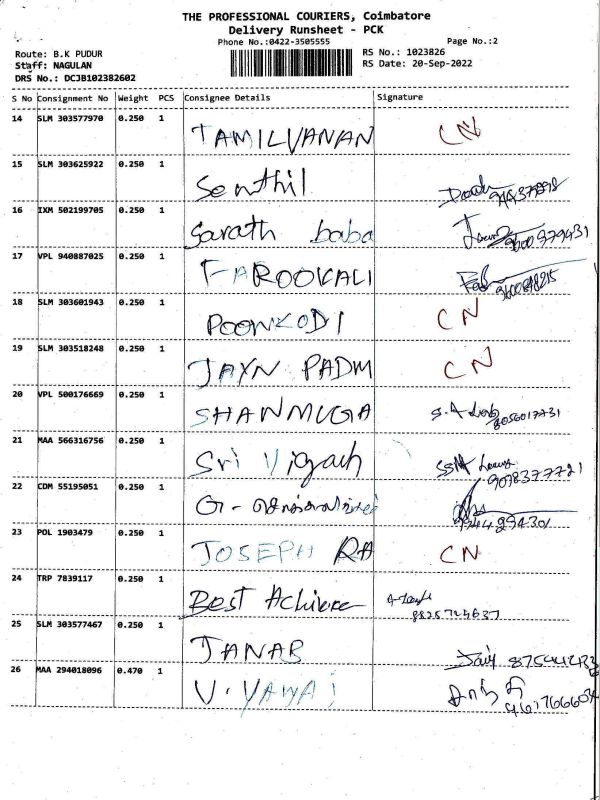 THE PROFESSIONAL COURIERS, Coimbatore
Delivery Runsheet - PCK
Phone No.:0422-3505555 Page No.:2
Route: B.K PUDUR RS No.: 1023826
Staff: NAGULAN RS Date: 20-Sep-2022
DRS No.: DCJB102382602
S No Consignment No Weight PCS Consignee Details Signature
14 SLM 303577970 0.250 1 TAMILVANAN CN
15 SLM 303625922 0.250 1 Senthil
16 IXM 502199705 0.250 1 Sarath baba 9600979431
17 VPL 940887025 0.250 1 FAROOKALI
18 SLM 303601943 0.250 1 POONKODI CN
19 SLM 303518248 0.250 1 JAYN PADM CN
20 VPL 500176669 0.250 1 SHANMUGA 8056017731
21 MAA 566316756 0.250 1 Sri 9078377721
22 CDM 55195051 0.250 1 G- 9944294301
23 POL 1903479 0.250 1 JOSEPH RA CN
24 TRP 7839117 0.250 1 Best Achiever
25 SLM 303577467 0.250 1 JANAB
26 MAA 294018096 0.470 1